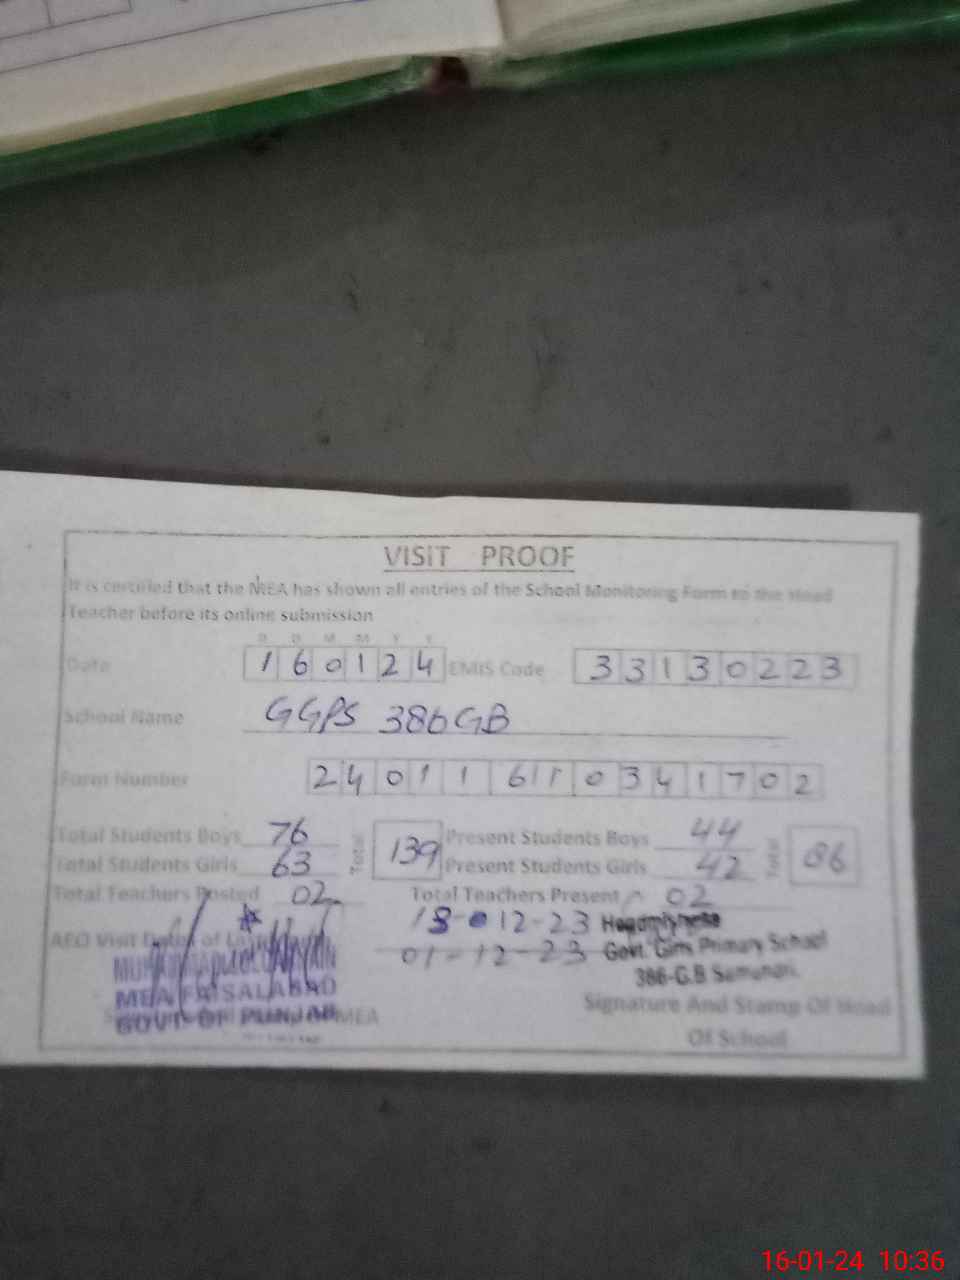 VISIT PROOF
It is certified that the MEA has shown all entries of the School Monitoring Form to the Head
Teacher before its online submission
D D M M Y Y
Date 160124 EMIS Code 33130223
School Name GGPS 386GB
Form Number 240116110341702
Total Students Boys 76 Total 139 Present Students Boys 44 Total 86
Total Students Girls 63 Present Students Girls 42
Total Teachers Posted 02 Total Teachers Present 02
AEO Visit 18-12-23 Headmistress
01-12-23 Govt. Girls Primary School
MEA FAISALABAD 386-G.B Samundri.
GOVT OF PUNJAB MEA Signature And Stamp Of Head
Of School
16-01-24 10:36